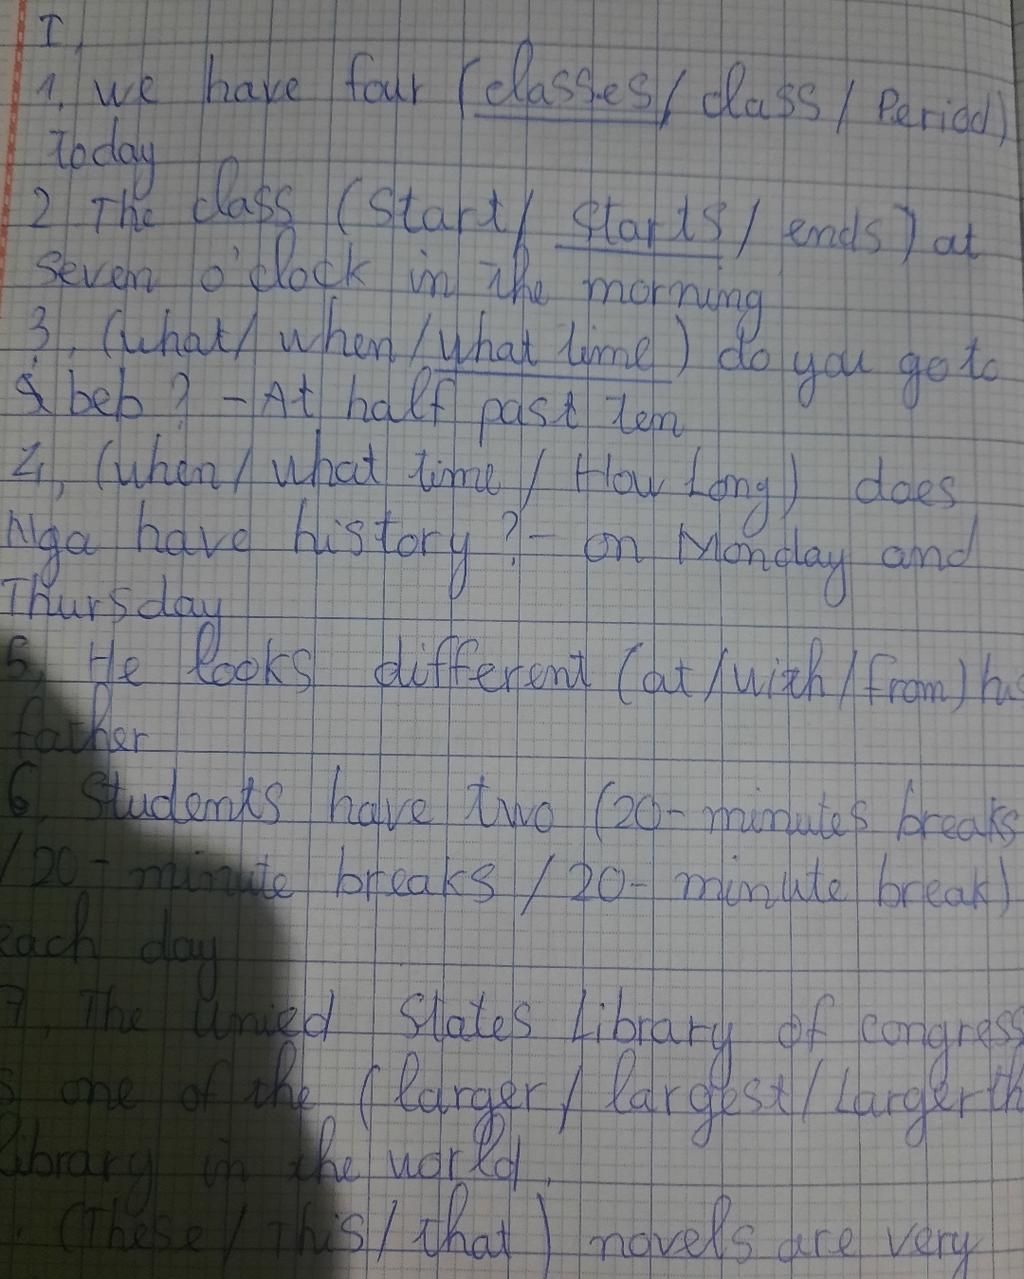 I,
1, we have four (classes/ class/ Period)
today
2, The class (Start/ starts/ ends) at
seven o'clock in the morning
3, (what/ when/ what time) do you go to
beb? - At half past ten
4, (when/ what time/ How Long) does
Nga have history? - on Monday and
Thursday
5, He looks different (at/with/from) his
father
6, Students have two (20- minutes breaks
/20 - minute breaks / 20- minute break)
each day
7, The Unied States Library of congress
is one of the (larger/ largest/ Larger th
library in the world.
(These/ This/ that) novels are very